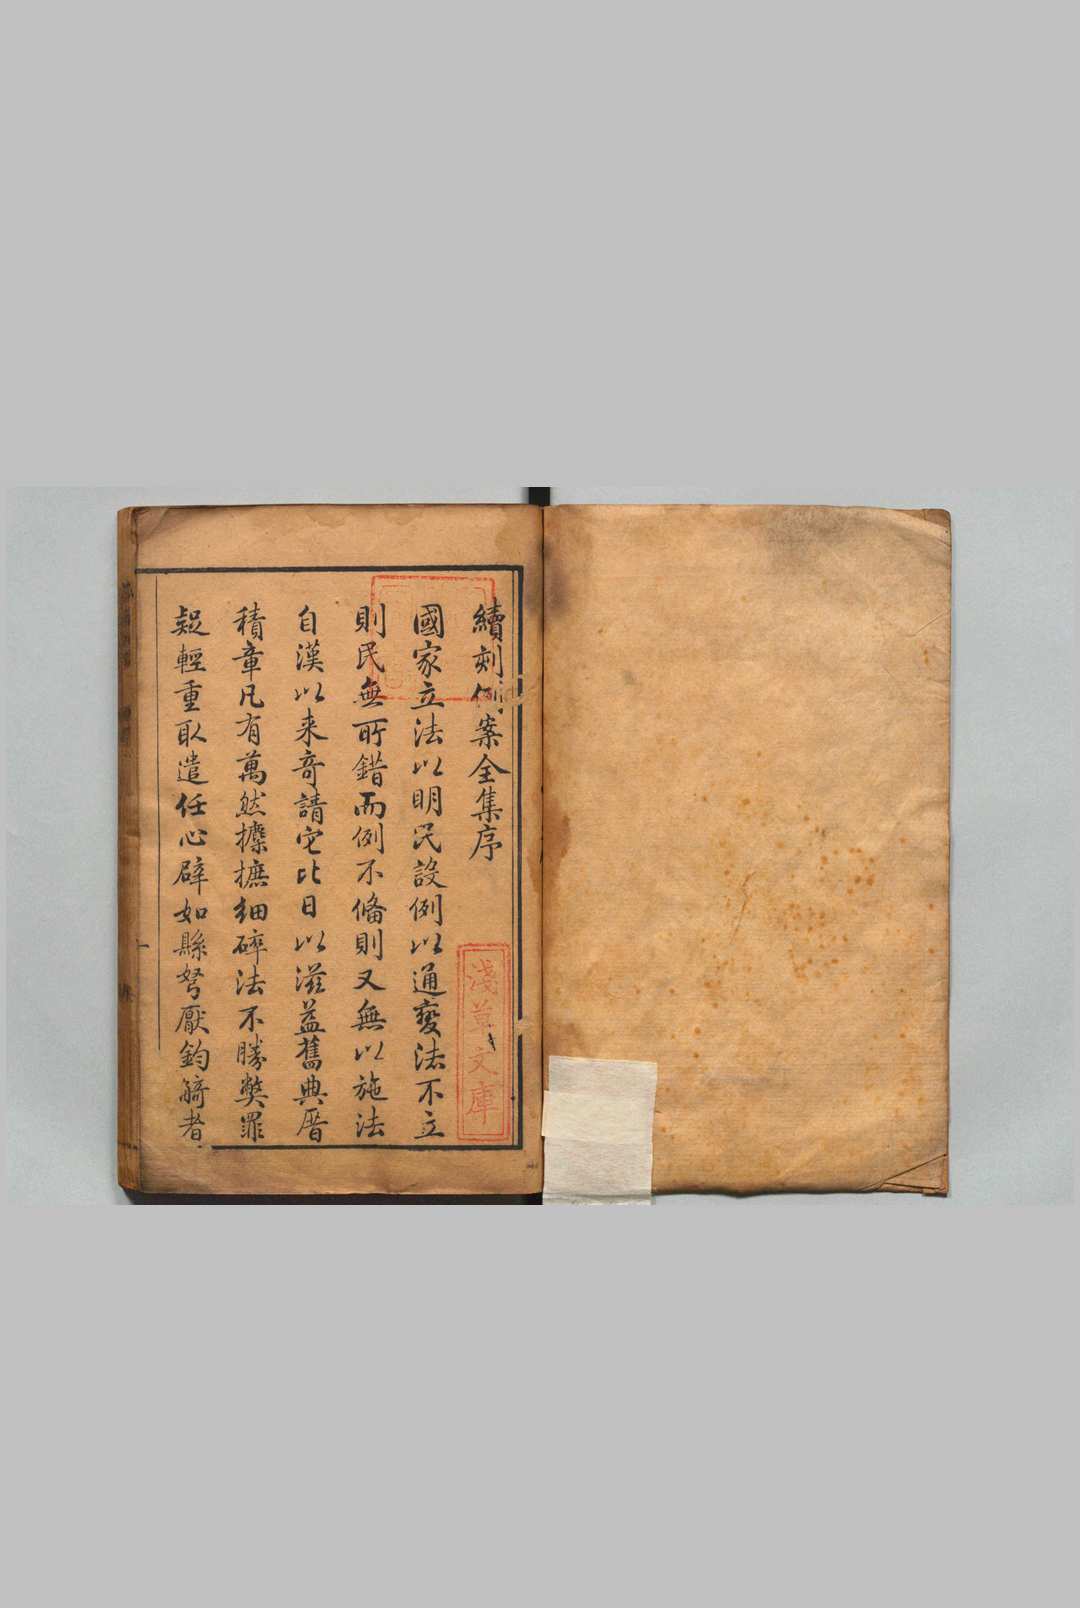 續刻例案全集序
國家立法以明民設例以通變法不立
則民無所錯而例不脩則又無以施法
自漢以来奇請它比日以滋益舊典厝
積章凡有萬然摭細碎法不勝獘罪
疑輕重取遣任心辟如縣弩厭鈞觭者
淺草文庫